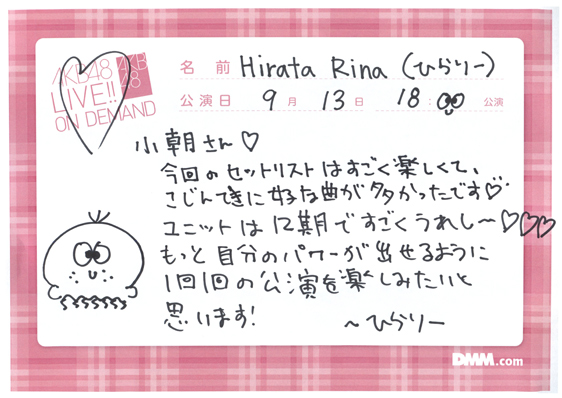 AKB48
LIVE!!
ON DEMAND
AKB
48
名前 Hirata Rina (ひらりー)
公演日 9月 13日 18: 公演
小朝さん♡
今回のセットリストはすごく楽しくて、
こじんてきに好きな曲が多かったです♡
ユニットは12期ですごくうれし〜♡♡♡
もっと自分のパワーが出せるように
1回1回の公演を楽しみたいと
思います!
〜ひらりー
DMM.com